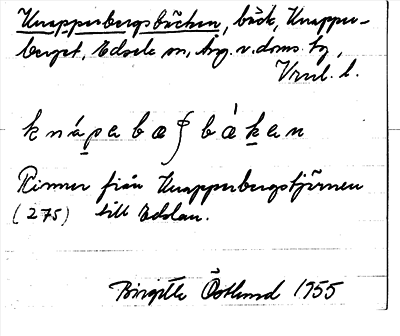 Knapperbergsbäcken, bäck, Knapper-
berget, Edsele sn, Ång. v. doms. tg,
Vrnl. l.
knápabæʃbàkan
Rinner från Knapperbergstjärnen
(275) till Edslan.
Birgitta Östlund 1955